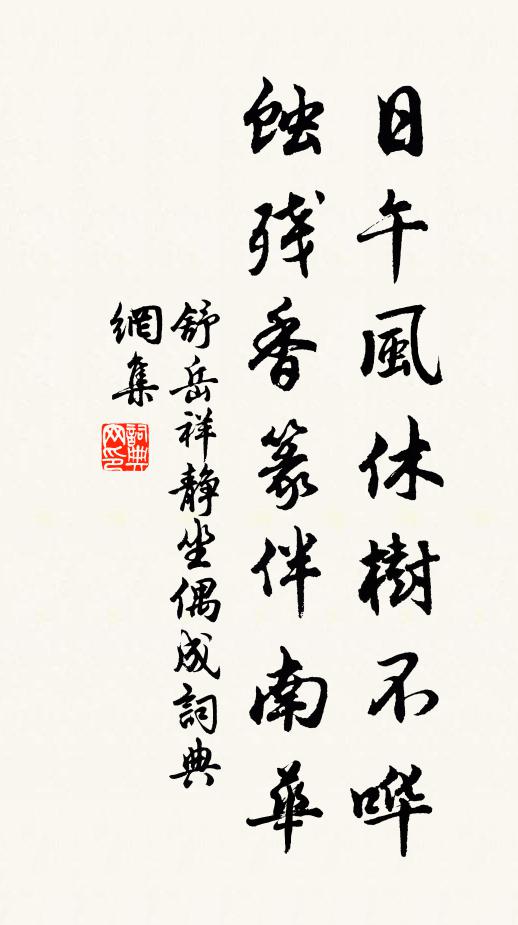 日午風休樹不哗
蝕残香篆伴南華
舒岳祥静坐偶成詞典
網集
詞典
网印